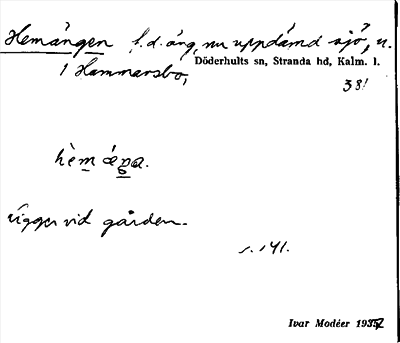 Hemängen f.d. äng, nu uppdämd sjö, u.
1 Hammarsbo,
Döderhults sn, Stranda hd, Kalm. l.
38!
hèm æŋa.
ligger vid gården.
s. 141.
Ivar Modéer 1932